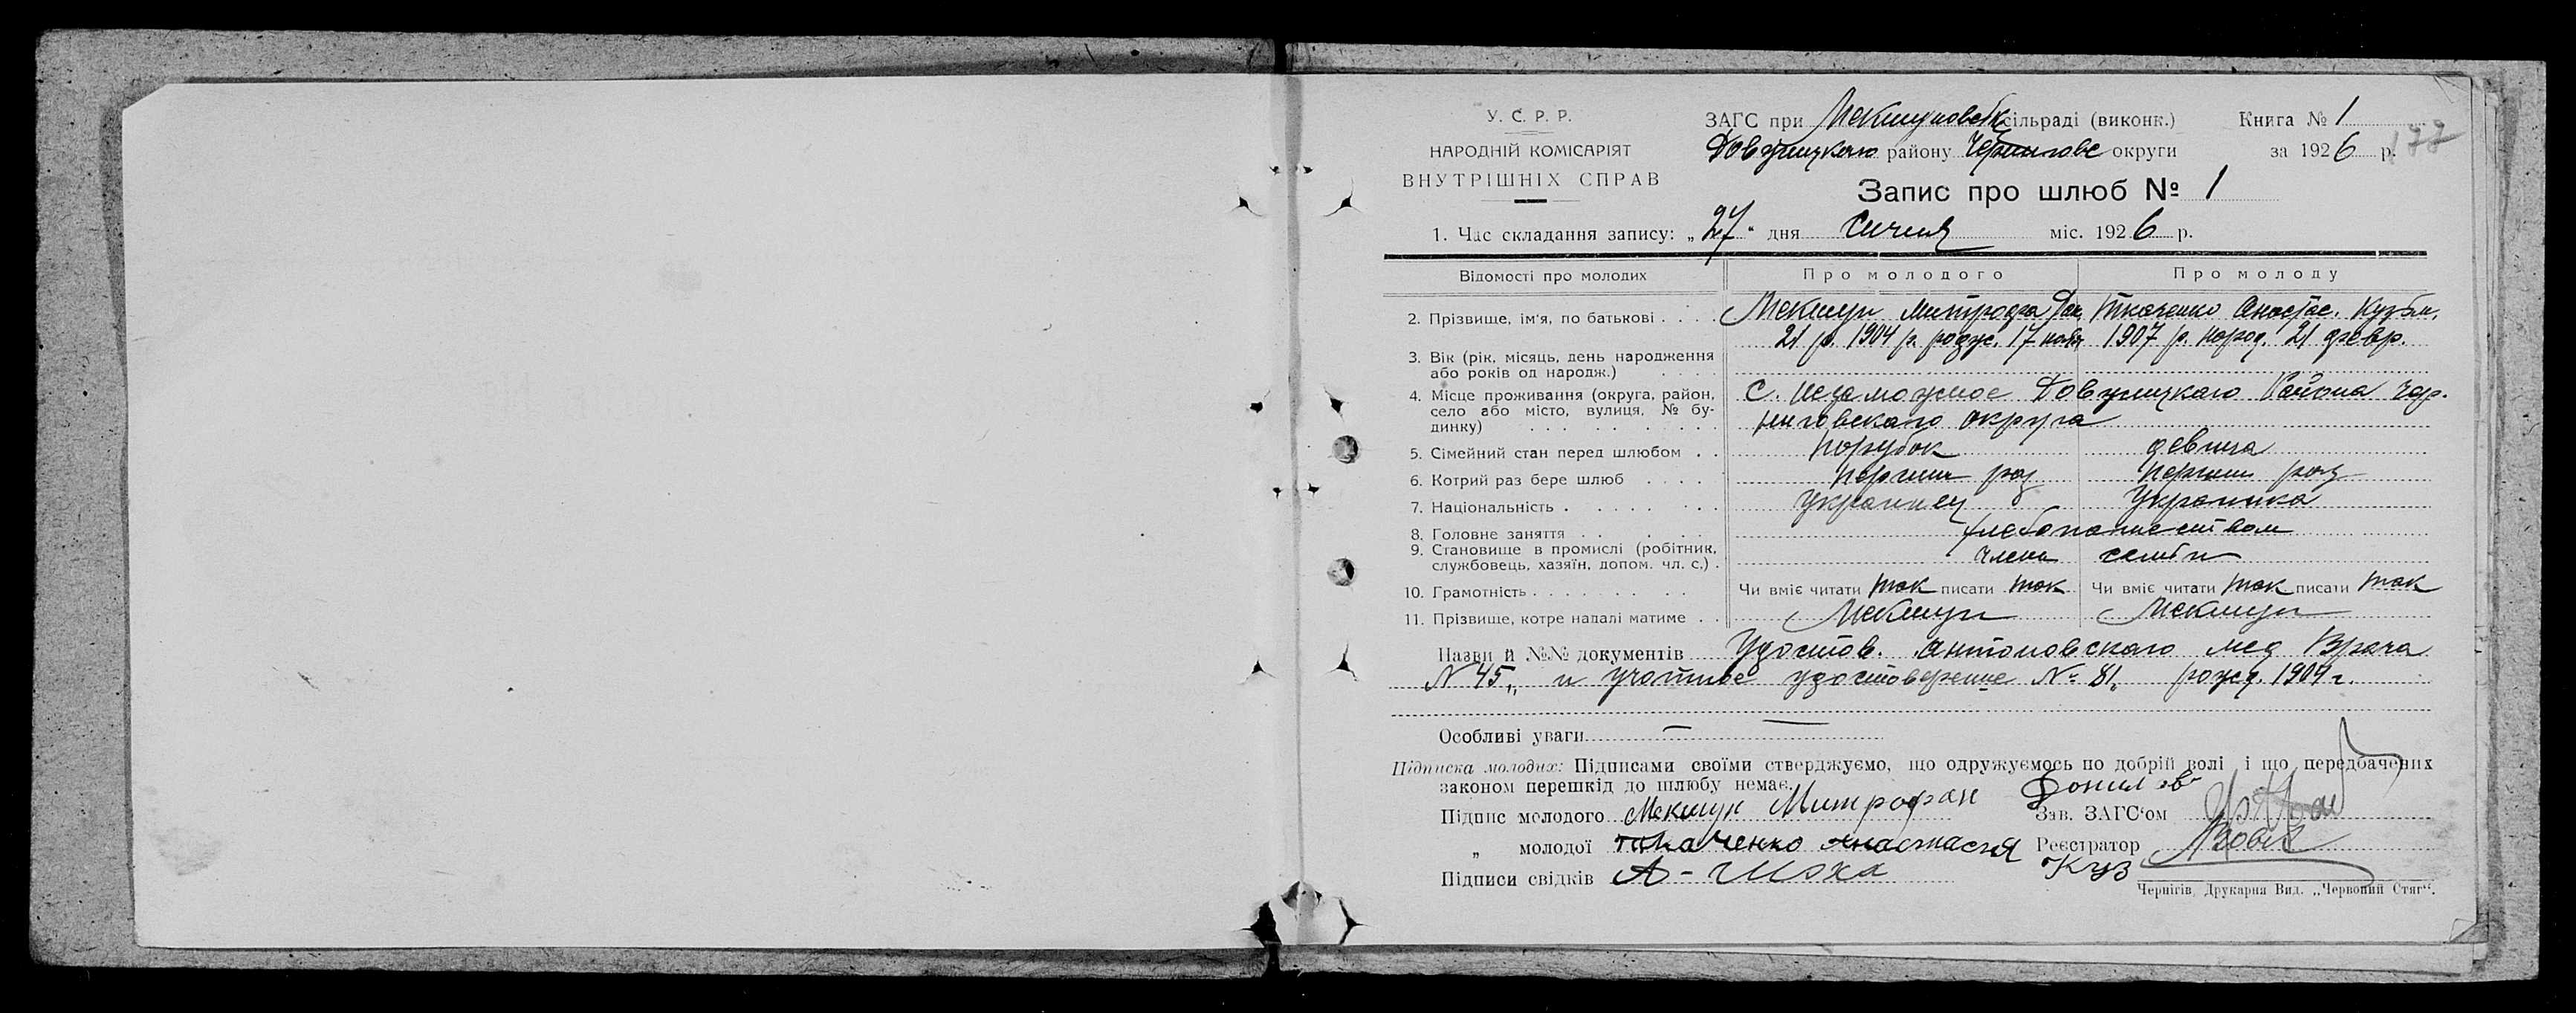 У. С. Р. Р.
НАРОДНІЙ КОМІСАРІЯТ
ВНУТРІШНІХ СПРАВ
ЗАГС при Мекшуновск сільраді (виконк.) Книга № 1
района Чернигове округи за 1926 р. 177
Запис про шлюб № 1
1. Час складання запису: „27“ дня Сичня міс. 1926 р.
Відомості про молодих Про молодого Про молоду
2. Прізвище, ім'я, по батькові . . . . Мекшун Митрофа Дан Ткаченко Анастас. Кузьм.
21 р. 1904 р. родж. 17 нояб 1907 р. народ. 21 февр.
3. Вік (рік, місяць, день народження
або років од народж.) . . . .
4. Місце проживання (округа, район,
село або місто, вулиця, № бу-
динку) . . . . . . . .
С. Незаможное Района Чер-
ниговского округа
5. Сімейний стан перед шлюбом . . Порубок девица
6. Котрий раз бере шлюб . . . . перший раз перший раз
7. Національність . . . . . . . украинец Украинка
8. Головне заняття . . . . . . хлебопашеством
9. Становище в промислі (робітник,
службовець, хазяїн, допом. чл. с.) . члени семьи
10. Грамотність . . . . . . . . Чи вміє читати так писати так Чи вміє читати так писати так
11. Прізвище, котре надалі матиме . . Мекшун Мекшун
Назви й №№ документів Удостов. Антоновского мед Врача
N 45„ и учотное удостоверение № 81„ рожд. 1904 г.
Особливі уваги — —
Підписка молодих: Підписами своїми стверджуємо, що одружуємось по добрій волі і що передбачених
законом перешкід до шлюбу немає.
Підпис молодого Мекшун Митрофан Данилов
Зав. ЗАГС'ом
„ молодої Ткаченко Анастасия Куз
Реєстратор
Підписи свідків
Чернігів, Друкарня Вид. „Червоний Стяг“.